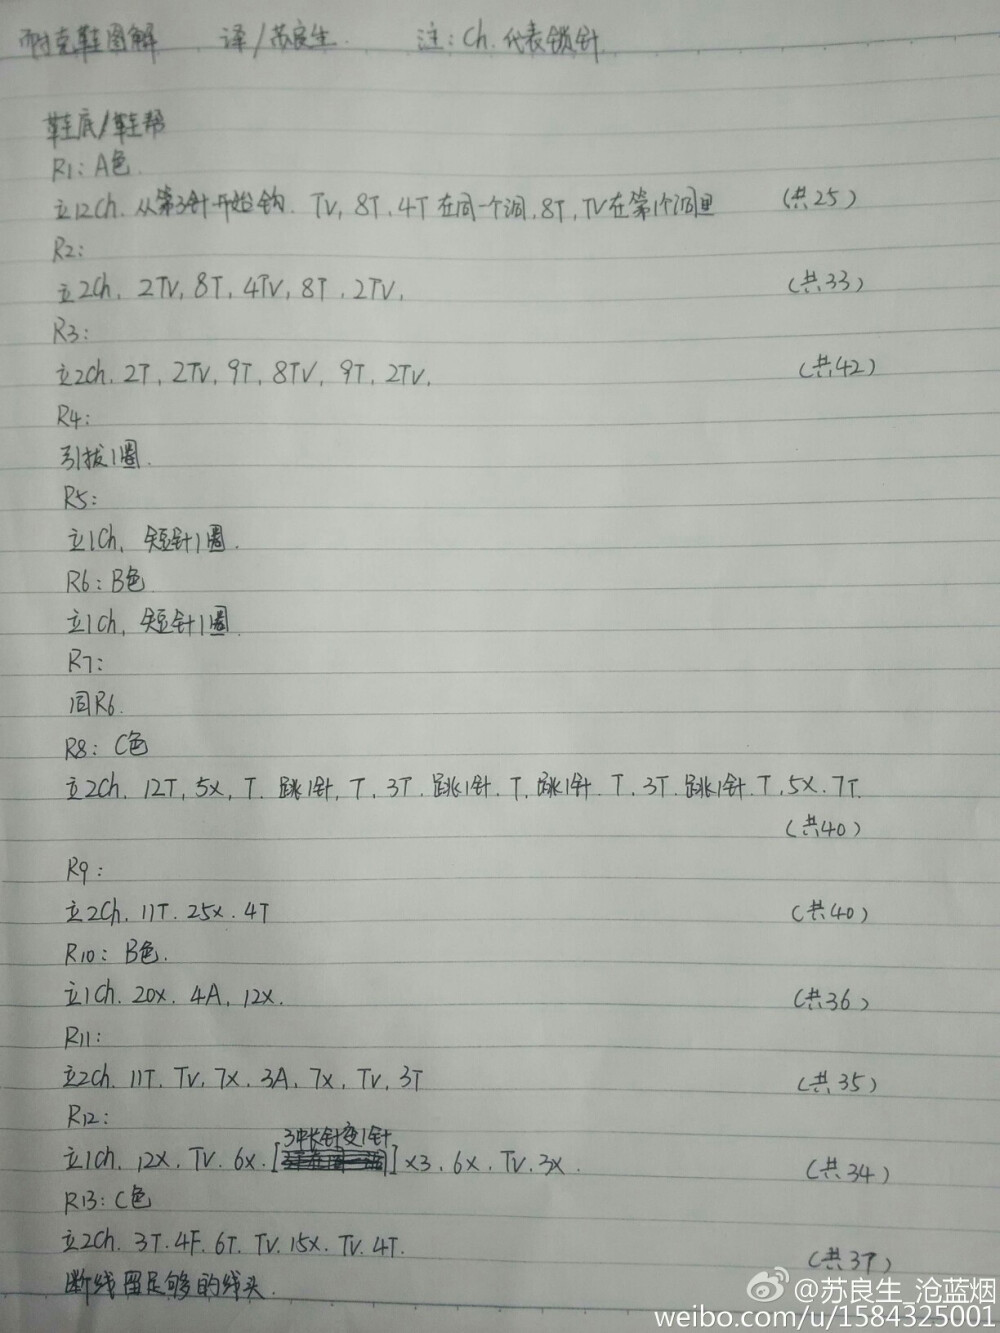 耐克鞋图解 译/苏良生. 注:Ch.代表锁针
鞋底/鞋帮
R1:A色.
立12Ch.从第3针开始钩.TV,8T,4T在同一个洞,8T,TV在第1个洞里 (共25)
R2:
立2Ch,2TV,8T,4TV,8T,2TV, (共33)
R3:
立2Ch.2T,2TV,9T,8TV,9T,2TV, (共42)
R4:
引拔1圈.
R5:
立1Ch,短针1圈.
R6:B色
立1Ch,短针1圈.
R7:
同R6.
R8:C色
立2Ch.12T,5X,T.跳1针,T,3T.跳1针.T,跳1针.T,3T.跳1针.T,5X.7T.
(共40)
R9:
立2Ch.11T.25X.4T (共40)
R10:B色.
立1Ch.20X.4A,12X. (共36)
R11:
立2Ch.11T.TV,7X,3A,7X,TV,3T (共35)
R12:
3中长针变1针
立1Ch.12X.TV.6X.[ ]X3.6X.TV.3X. (共34)
R13:C色
立2Ch.3T.4F.6T.TV.15X.TV.4T. (共37)
断线留足够的线头.
@苏良生_沧蓝烟
weibo.com/u/1584325001